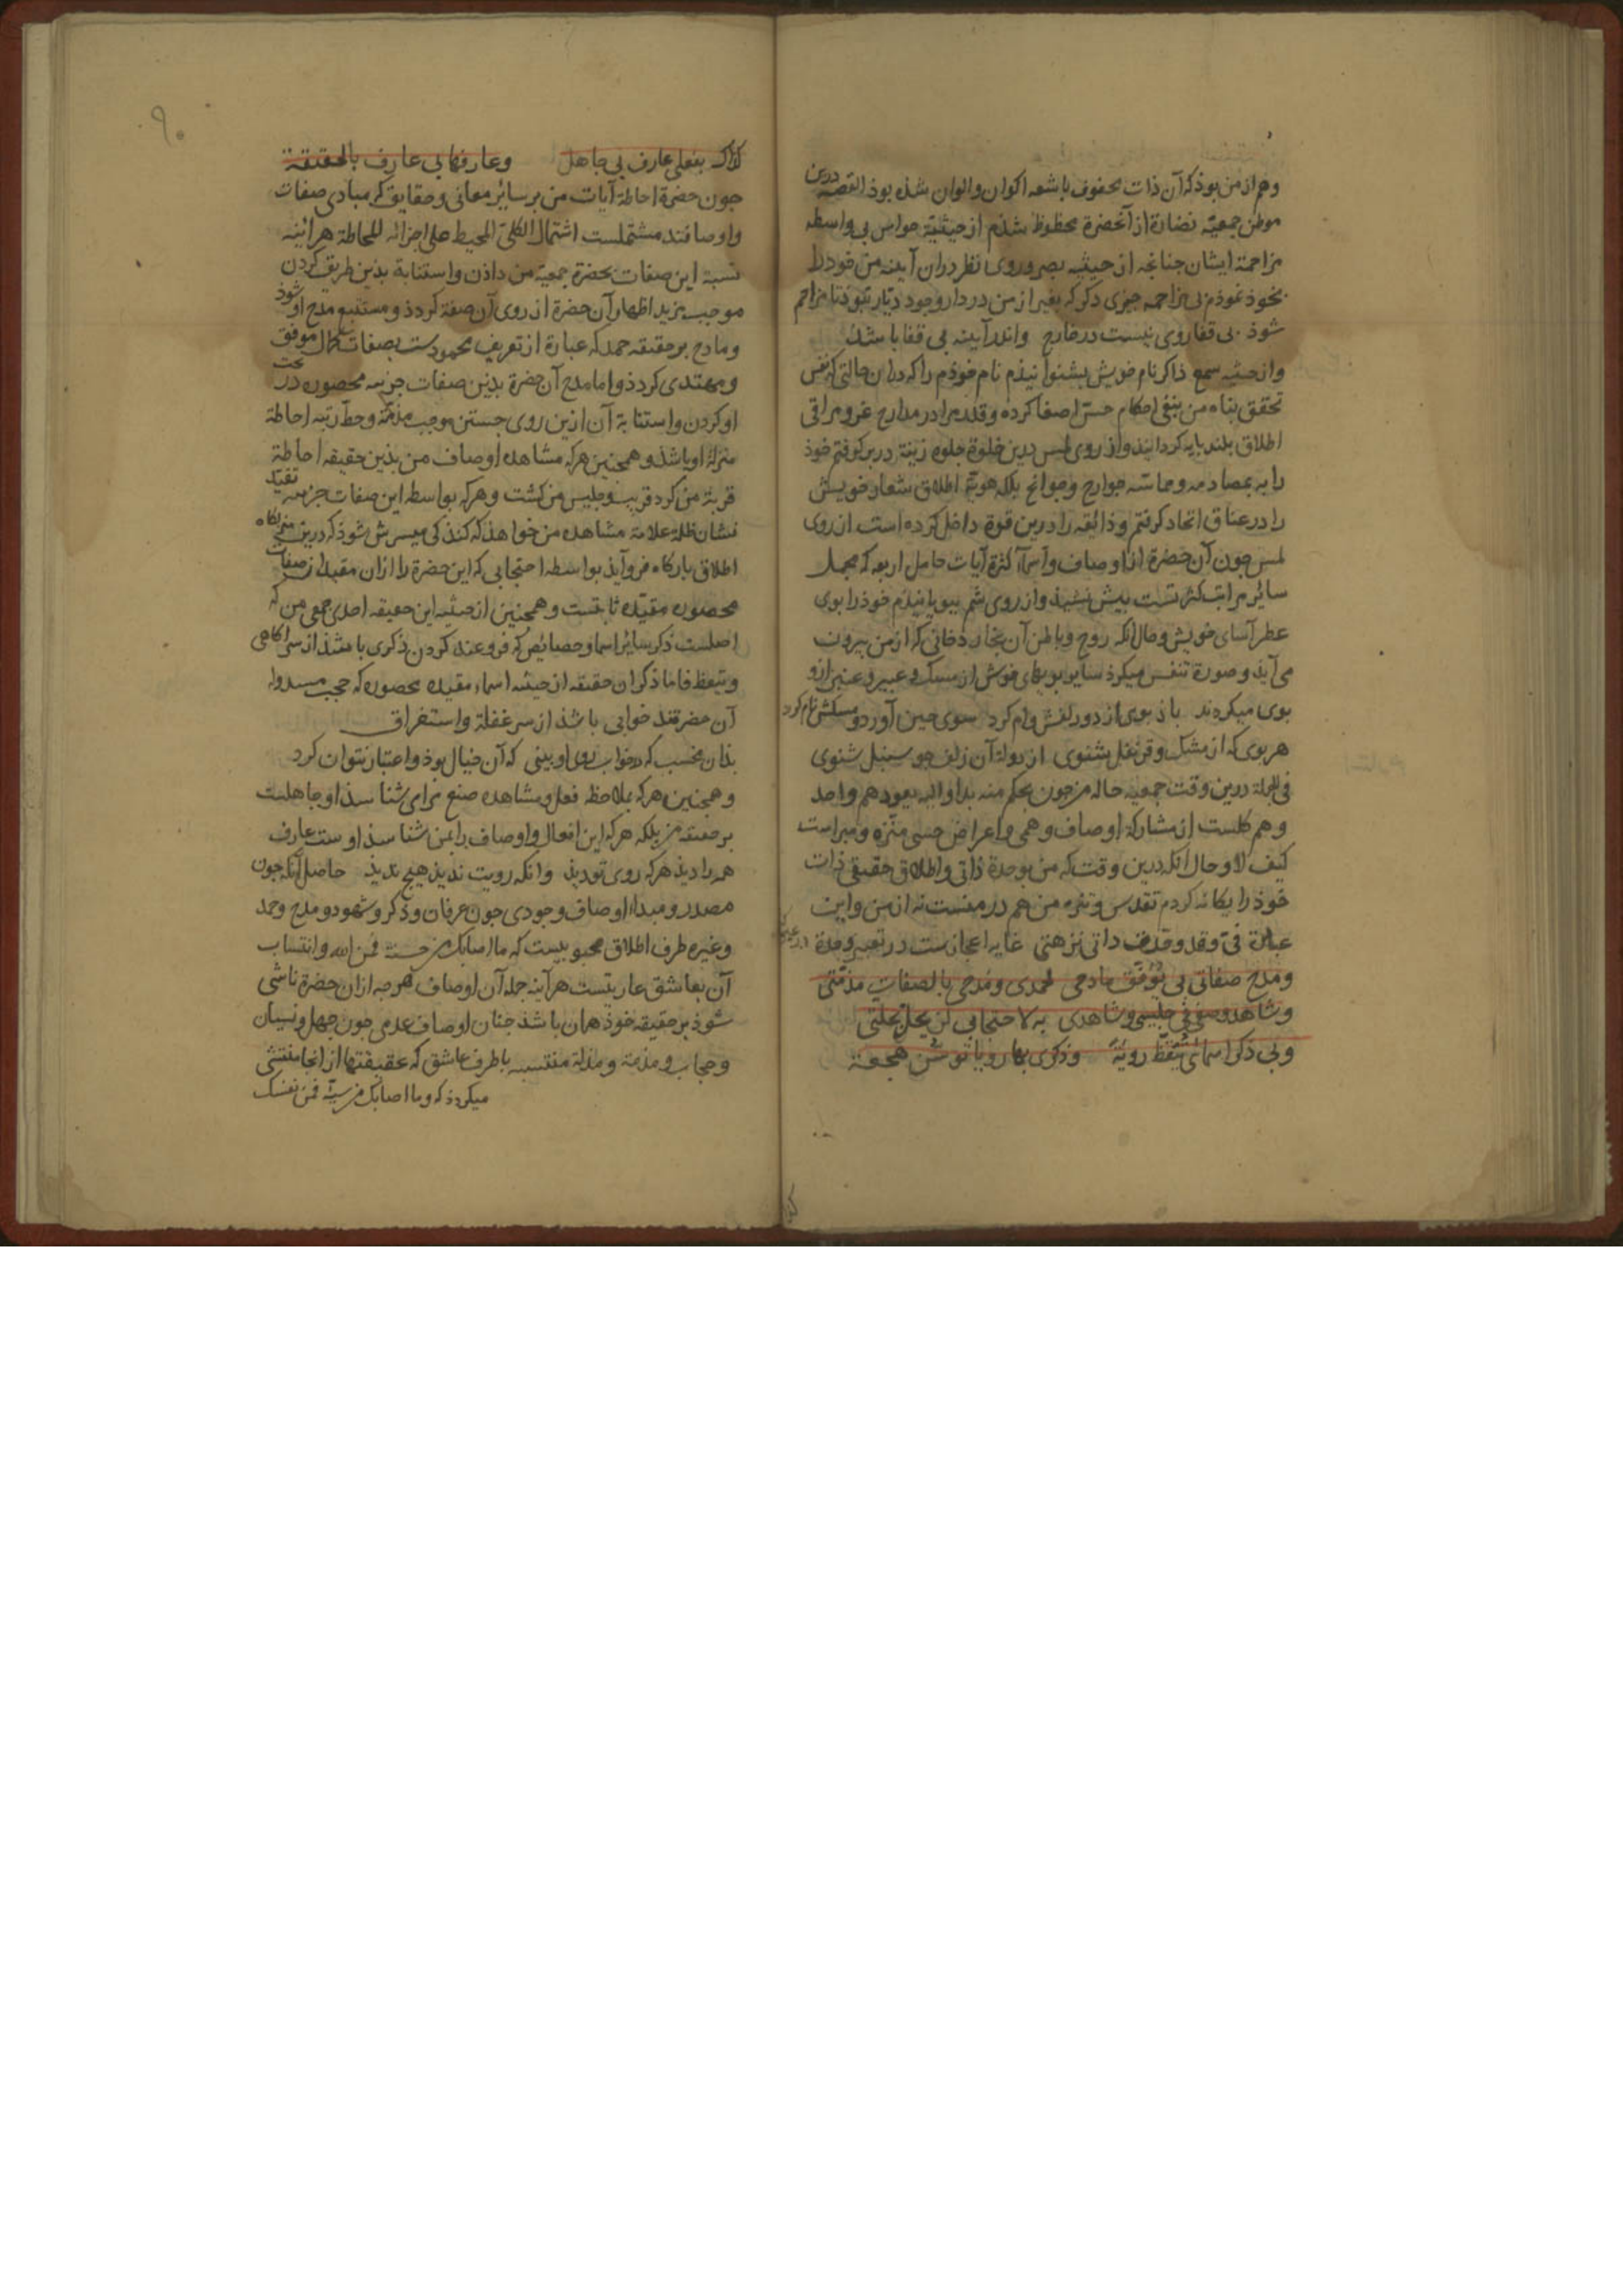 وهم از من بوذ که آن ذات محفوف باشعه اکوان و الوان شذه بوذ القصه درین
موطن جمعیّه نضارة از آنحضرة محظوظ شذم از حیثیّة حواس بی واسطه
مزاحمة ایشان چنانچه از حیثیه بصر و روی نظر دران آینه من خود را
بخوذ نموذم بی مزاحمه چیزی دکر که بغیر از من در دار وجود دیّار نبوذ تا مزاحم
شوذ بی قفا روی نیست در خارج واندر آینه بی قفا باشد
واز حیثیه سمع ذاکر نام خویش بشنوانیذم نام خوذم را که دران حالتی که نفس
تحقق پناه من بنفی احکام حسّ اصغا کرده و قلد مرا در مدارج عز و مراقی
اطلاق بلند پایه کردانیذ و از روی لمس درین خلوة جلوه زینة در بر کرفتم خوذ
را به مصادمه و مماسّه جوارح و جوانح بلکه هویّة اطلاق شعار خویش
را در عناق اتحاد کرفتم و ذائقه را درین قوة داخل کرده است از روی
لمس چون آن حضرة از اوصاف و اسماء کثرة آیات حامل اربعه که مجمل
سائر مراتب کثرتست بیش نشیذ و از روی شم ببویانیذم خوذ را بوی
عطر آسای خویش و حال آنکه روح و باطن آن بخار دخانی که از من بیرون
می آید و صورة تنفس میکرذ سایر بویهای خوش از مسک و عبیر و عنبر ازو
بوی میکردند باذ بوی از دو زلفش وام کرد سوی چین آورد و مسکش نام کرد
هر بوی که از مشک و قرنفل شنوی از دولة آن زلف چو سنبل شنوی
فی الجملة درین وقت جمعیه حاله من چون بحکم منه بدا و الیه یعود هم واحد
وهم کلست از مشارکة اوصاف وهمی و اعراض حسی منزه و مبراست
کیف لا و حال آنکه درین وقت که من بوحدة ذاتی و اطلاق حقیقی ذات
خوذ را یکانه کردم تقدس و تنزه من هم در منست نه از من و این
عبارة فیّ وقد وقف ذاتی نزهتی غایه اعجازست در تعبیر وحدة
ومدح صفاتی بی یُوَفِّق مادحی لحمدی ومدحی بالصفات مذمّتی
وشاهد وصفی فی جلیسی وشاهدی به لاحتجابی لن یحل بحلتی
وبی ذکر اسمائی تیقّظ رویة وذکری بها رویا توسّن هجعة
کذاک بفعلی عارف بی جاهل وعارفها بی عارف بالحقیقة
چون حضرة احاطة آیات من بر سائر معانی و حقایق که مبادی صفات
و اوصافند مشتملست اشتمال الکلی المحیط علی اجزائه للحاطة هرآینه
نسبة این صفات بحضرة جمعیّة من داذن و استنابة بذین طریق کردن
موجب مزید اظهار آن حضرة از روی آن صفة کردذ و مستتبع مدح او شوذ
و مادح بر حقیقه حمد که عبارة از تعریف محمودست بصفات کمال موفق
و مهتدی کردذ و اما مدح آن حضرة بدین صفات جزئیه محصوره در تحت
او کردن و استنابة آن ازین روی جستن موجب مذمّة و حطّ رتبه احاطة
منزلة او باشذ و همچنین هر که مشاهده اوصاف من بذین حقیقه احاطة
قربة من کرد قریب و جلیس من کشت و هر که بواسطه این صفات جزئیه تقید
نشان ظلة علامة مشاهده من خواهذ که کند کی میسرش شوذ که درین
اطلاق بارکاه فرو آیذ بواسطه احتجابی که این حضرة را ازان مقید از صفات
محصوره مقیّده ثابتست و همچنین از حیثیه این حقیقه احدی جمعی من که
اصلست ذکر سائر اسما و خصائص که فروعند کردن ذکری باشذ از سر آکاهی
و تیقظ فاما ذکر ان حقیقه از حیثیه اسماء مقیده محصوره که حجب مسدوله
آن حضرتند خوابی باشذ از سر غفلة و استغراق
بذان مخسب که در خواب روی او بینی که آن خیال بوذ و اعتبار نتوان کرد
و همچنین هر که بملاحظه فعل و مشاهده صنع مرا می شناسذ او جاهلست
بر حقیقه من بلکه هر که این افعال و اوصاف را بمن شناسذ اوست عارف
همه را دیذ هر که روی تو دیذ وانکه رویت ندیذ هیچ ندیذ حاصل آنکه چون
مصدر و مبداء اوصاف وجودی چون عرفان و ذکر و شهود و مدح و حمد
و غیره طرف اطلاق محبوبیست که ما اصابک من حسنة فمن الله و انتساب
آن بعاشق عاریتست هرآینه جمله آن اوصاف هر چه ازان حضرة ناشی
شوذ بر حقیقه خوذ همان باشذ چنان اوصاف عدمی چون جهل و نسیان
و حجاب و مذمة و مذلة منتسبه باطرف عاشق که حقیقتها از انجا منتشی
میکردذ که وما اصابک من سیئة فمن نفسک